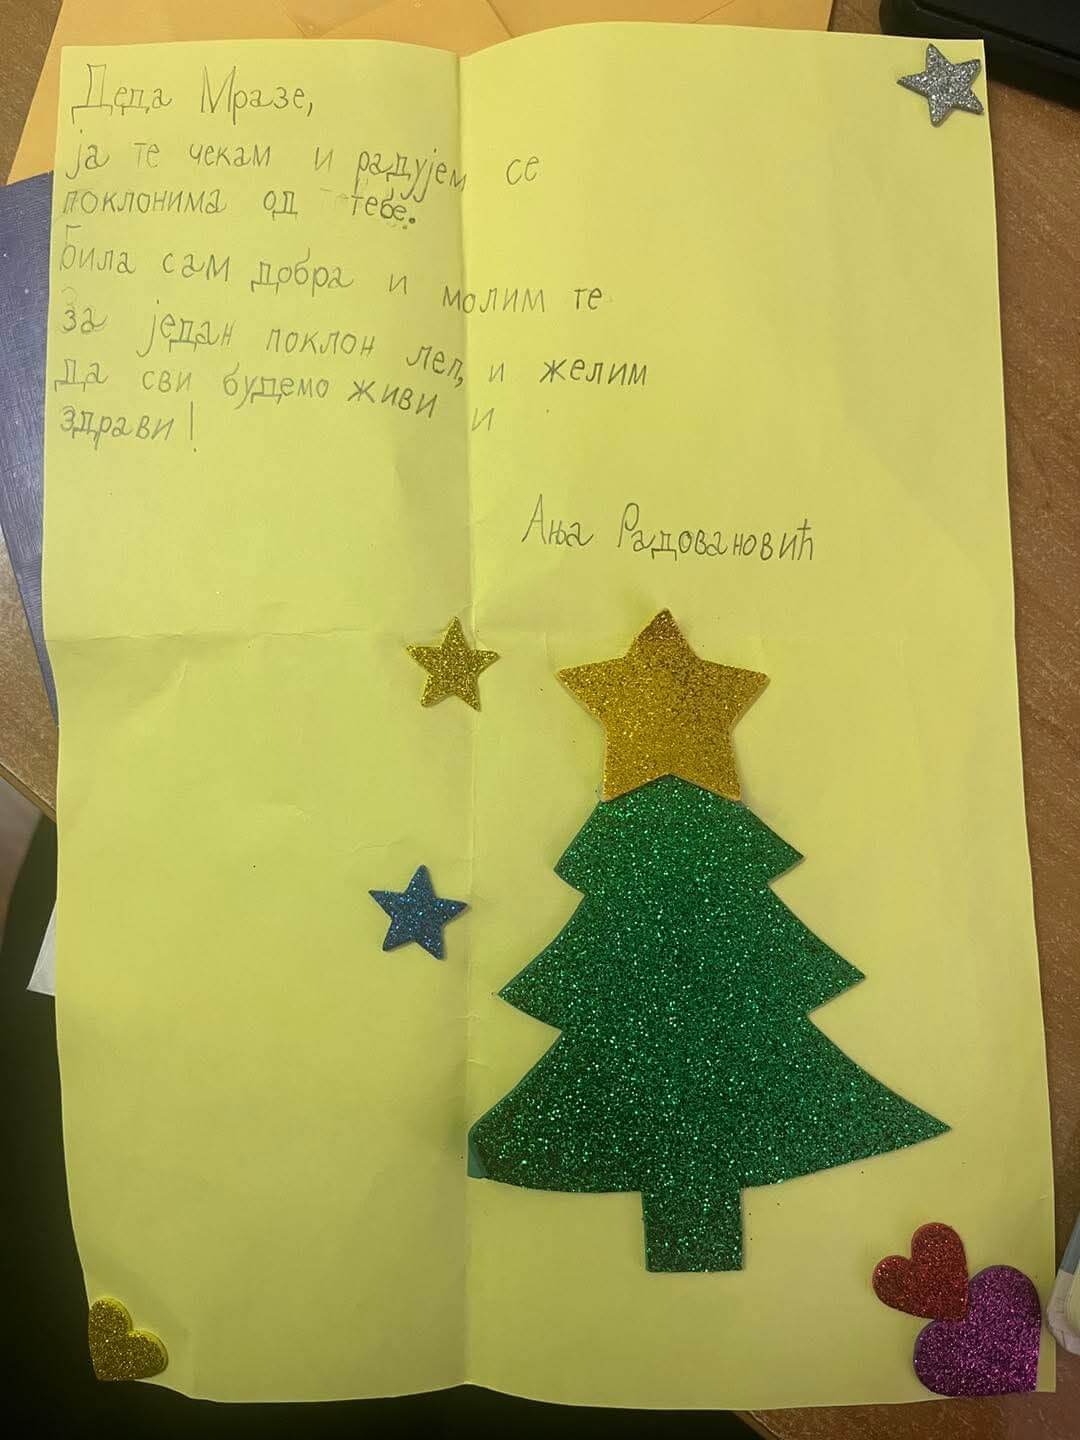 Деда Мразе,
ја те чекам и радујем се
поклонима од тебе.
Била сам добра и молим те
За један поклон леп, и желим
да сви будемо живи и
здрави!
Ања Радовановић